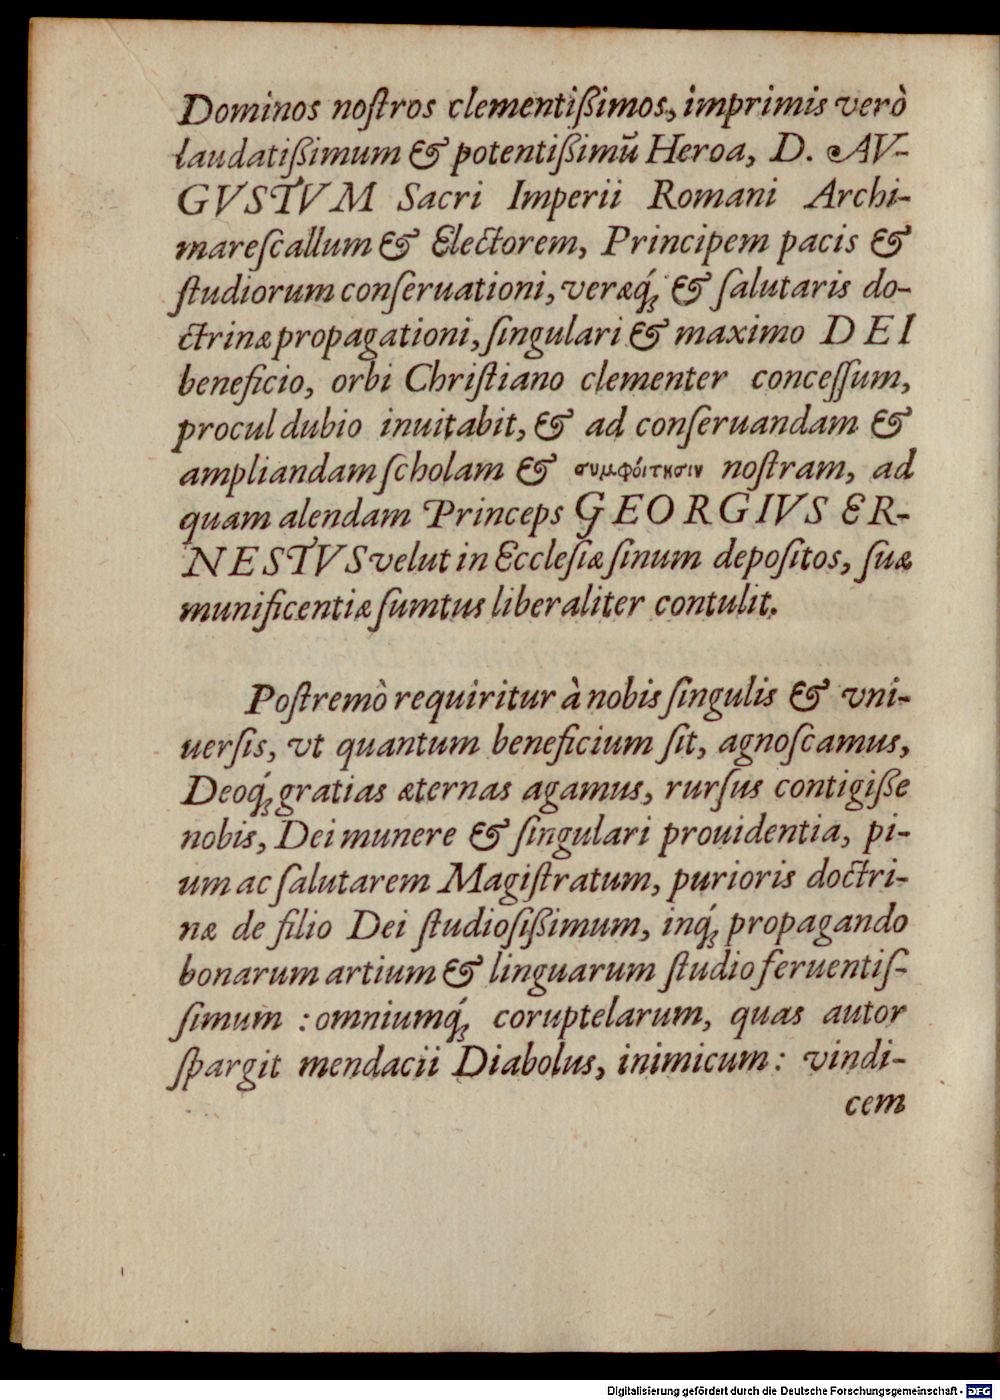 Dominos noſtros clementiſsimos, imprimis verò
laudatiſsimum & potentiſsimũ Heroa, D. AV-
GVSTVM Sacri Imperii Romani Archi-
mareſcallum & Electorem, Principem pacis &
ſtudiorum conſeruationi, veræq́ꝫ & ſalutaris do-
ctrinæ propagationi, ſingulari & maximo DEI
beneficio, orbi Chriſtiano clementer conceſſum,
procul dubio inuitabit, & ad conſeruandam &
ampliandam ſcholam & συμφόιτησιν noſtram, ad
quam alendam Princeps GEORGIVS ER-
NESTVS velut in Eccleſiæ ſinum depoſitos, ſuæ
munificentiæ ſumtus liberaliter contulit.
Poſtremò requiritur à nobis ſingulis & vni-
uerſis, vt quantum beneficium ſit, agnoſcamus,
Deoq́ꝫ gratias æternas agamus, rurſus contigiſse
nobis, Dei munere & ſingulari prouidentia, pi-
um ac ſalutarem Magiſtratum, purioris doctri-
næ de filio Dei ſtudioſiſsimum, inq́ꝫ propagando
bonarum artium & linguarum ſtudio feruentiſ-
ſimum : omniumq́ꝫ coruptelarum, quas autor
ſpargit mendacii Diabolus, inimicum : vindi-
cem
Digitalisierung gefördert durch die Deutsche Forschungsgemeinschaft - DFG